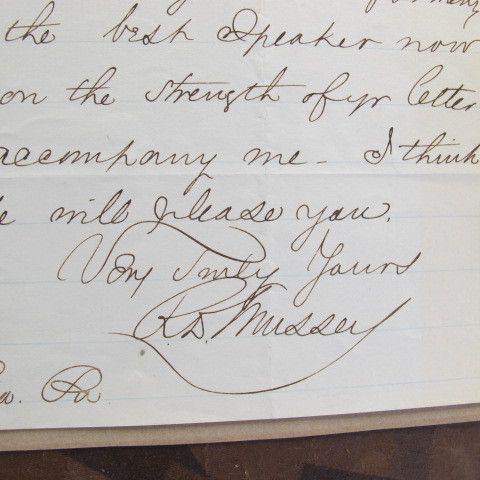 the best Speaker now
on the strength of yr letter
accompany me - I think
will please you.
Very Truly Yours
R.D. Mussey
Pa